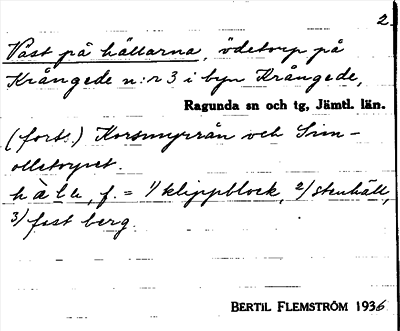 2.
Väst på hällarna, ödetorp på
Krångede n:r 3 i byn Krångede,
Ragunda sn och tg, Jämtl. län.
(forts.) Korsmyrån och Sim-
olletorpet.
hàlla, f. = 1/ klippblock, 2/ stenhäll,
3/ fast berg.
BERTIL FLEMSTRÖM 1936